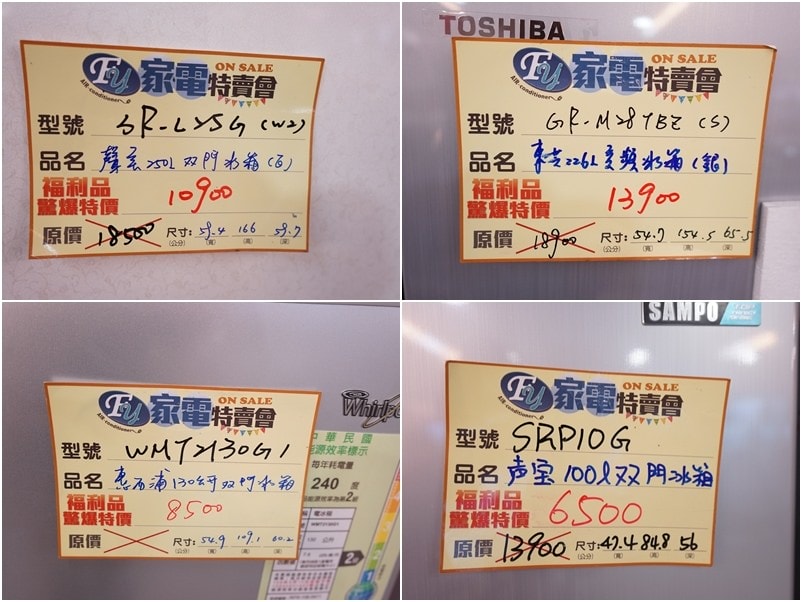 FU 家電特賣會
ON SALE
AIR-conditioner
型號 SR-L25G (W2)
品名 聲寶250L双門冰箱(白)
福利品
驚爆特價 10900
原價 18500 尺寸: 59.4 166 59.7
(公分) (寬) (高) (深)
TOSHIBA
FU 家電特賣會
ON SALE
AIR-conditioner
型號 GR-M28TBZ (S)
品名 東芝226L變頻冰箱(銀)
福利品
驚爆特價 13900
原價 18900 尺寸: 54.7 154.5 65.5
(公分) (寬) (高) (深)
FU 家電特賣會
ON SALE
AIR-conditioner
型號 WMT2130G1
品名 惠而浦130公升双門冰箱
福利品
驚爆特價 8500
原價 尺寸: 54.9 109.1 60.2
(公分) (寬) (高) (深)
Whirlpo
中華民國
能源效率標示
每年耗電量
240 度
電冰箱
2級
SAMPO
FU 家電特賣會
ON SALE
AIR-conditioner
型號 SRP10G
品名 声宝100l双門冰箱
福利品
驚爆特價 6500
原價 13900 尺寸: 47.4 84.8 56
(公分) (寬) (高) (深)